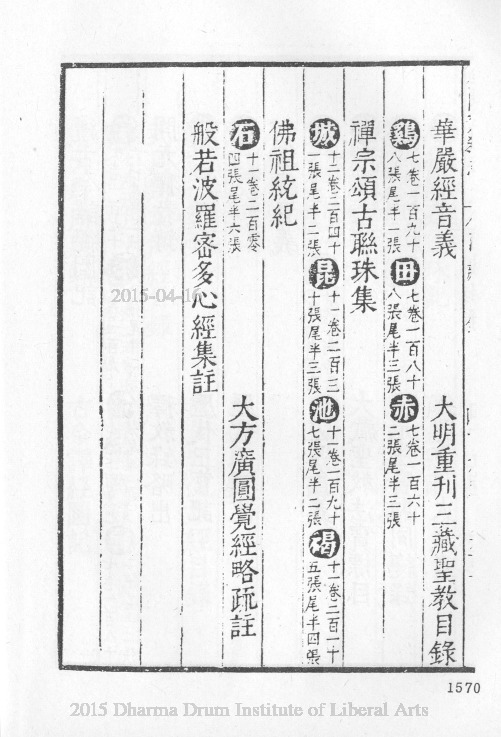 華嚴經音義　大明重刊三藏聖教目錄
雞 七卷一百九十八張尾半一張 田 七卷一百八十八張尾半三張 赤 七卷一百六十二張尾半三張
禪宗頌古聯珠集
城 十二卷二百四十一張尾半二張 昆 十一卷二百三十張尾半三張 池 十一卷一百九十七張尾半二張 碣 十一卷二百一十五張尾半四張
佛祖統紀
石 十一卷二百零四張尾半六張
般若波羅密多心經集註　大方廣圓覺經略疏註
2015-04-16
1570
2015 Dharma Drum Institute of Liberal Arts